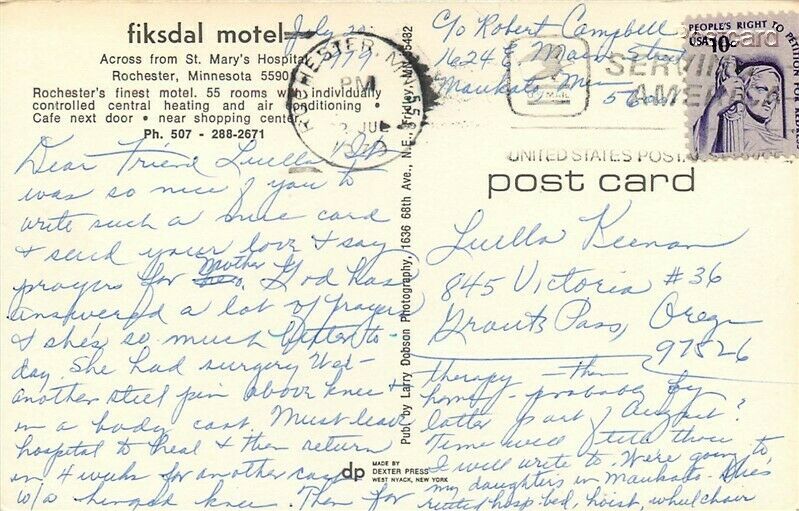 fiksdal motel
Across from St. Mary's Hospital
Rochester, Minnesota 55901
Rochester's finest motel. 55 rooms with individually
controlled central heating and air conditioning •
Cafe next door • near shopping center
Ph. 507 - 288-2671
July
1979
ROCHESTER, MN
PM
JUL
559
C/o Robert Campbell
1624 Main Street
Mankato, Minn
PEOPLE'S RIGHT TO PETITION FOR REDRESS
USA 10c
postcard
SERVING
AMERICA
U.S. MAIL
UNITED STATES POSTAL
post card
Dear Friend Luella, It
was so nice of you to
write such a nice card
& send your love & say
prayers for Mother God has
answered a lot of prayers
& she's so much better to-
day. She had surgery Wed-
another steel pin above knee &
in a body cast. Must leave
hospital to heal & then return
in 4 weeks for another cast
w/a hinged knee. Then for
Luella Keenan
845 Victoria #36
Grants Pass, Oregon
97526
therapy - then
home - probably by
latter part of August?
Time will tell then
I will write to. We're going to
my daughters in Mankato. She's
rented hosp bed, hoist, wheelchair
Publ. by Larry Dobson Photography, 1636 68th Ave., N.E., Fridley, MN 55432
dp
MADE BY
DEXTER PRESS
WEST NYACK, NEW YORK